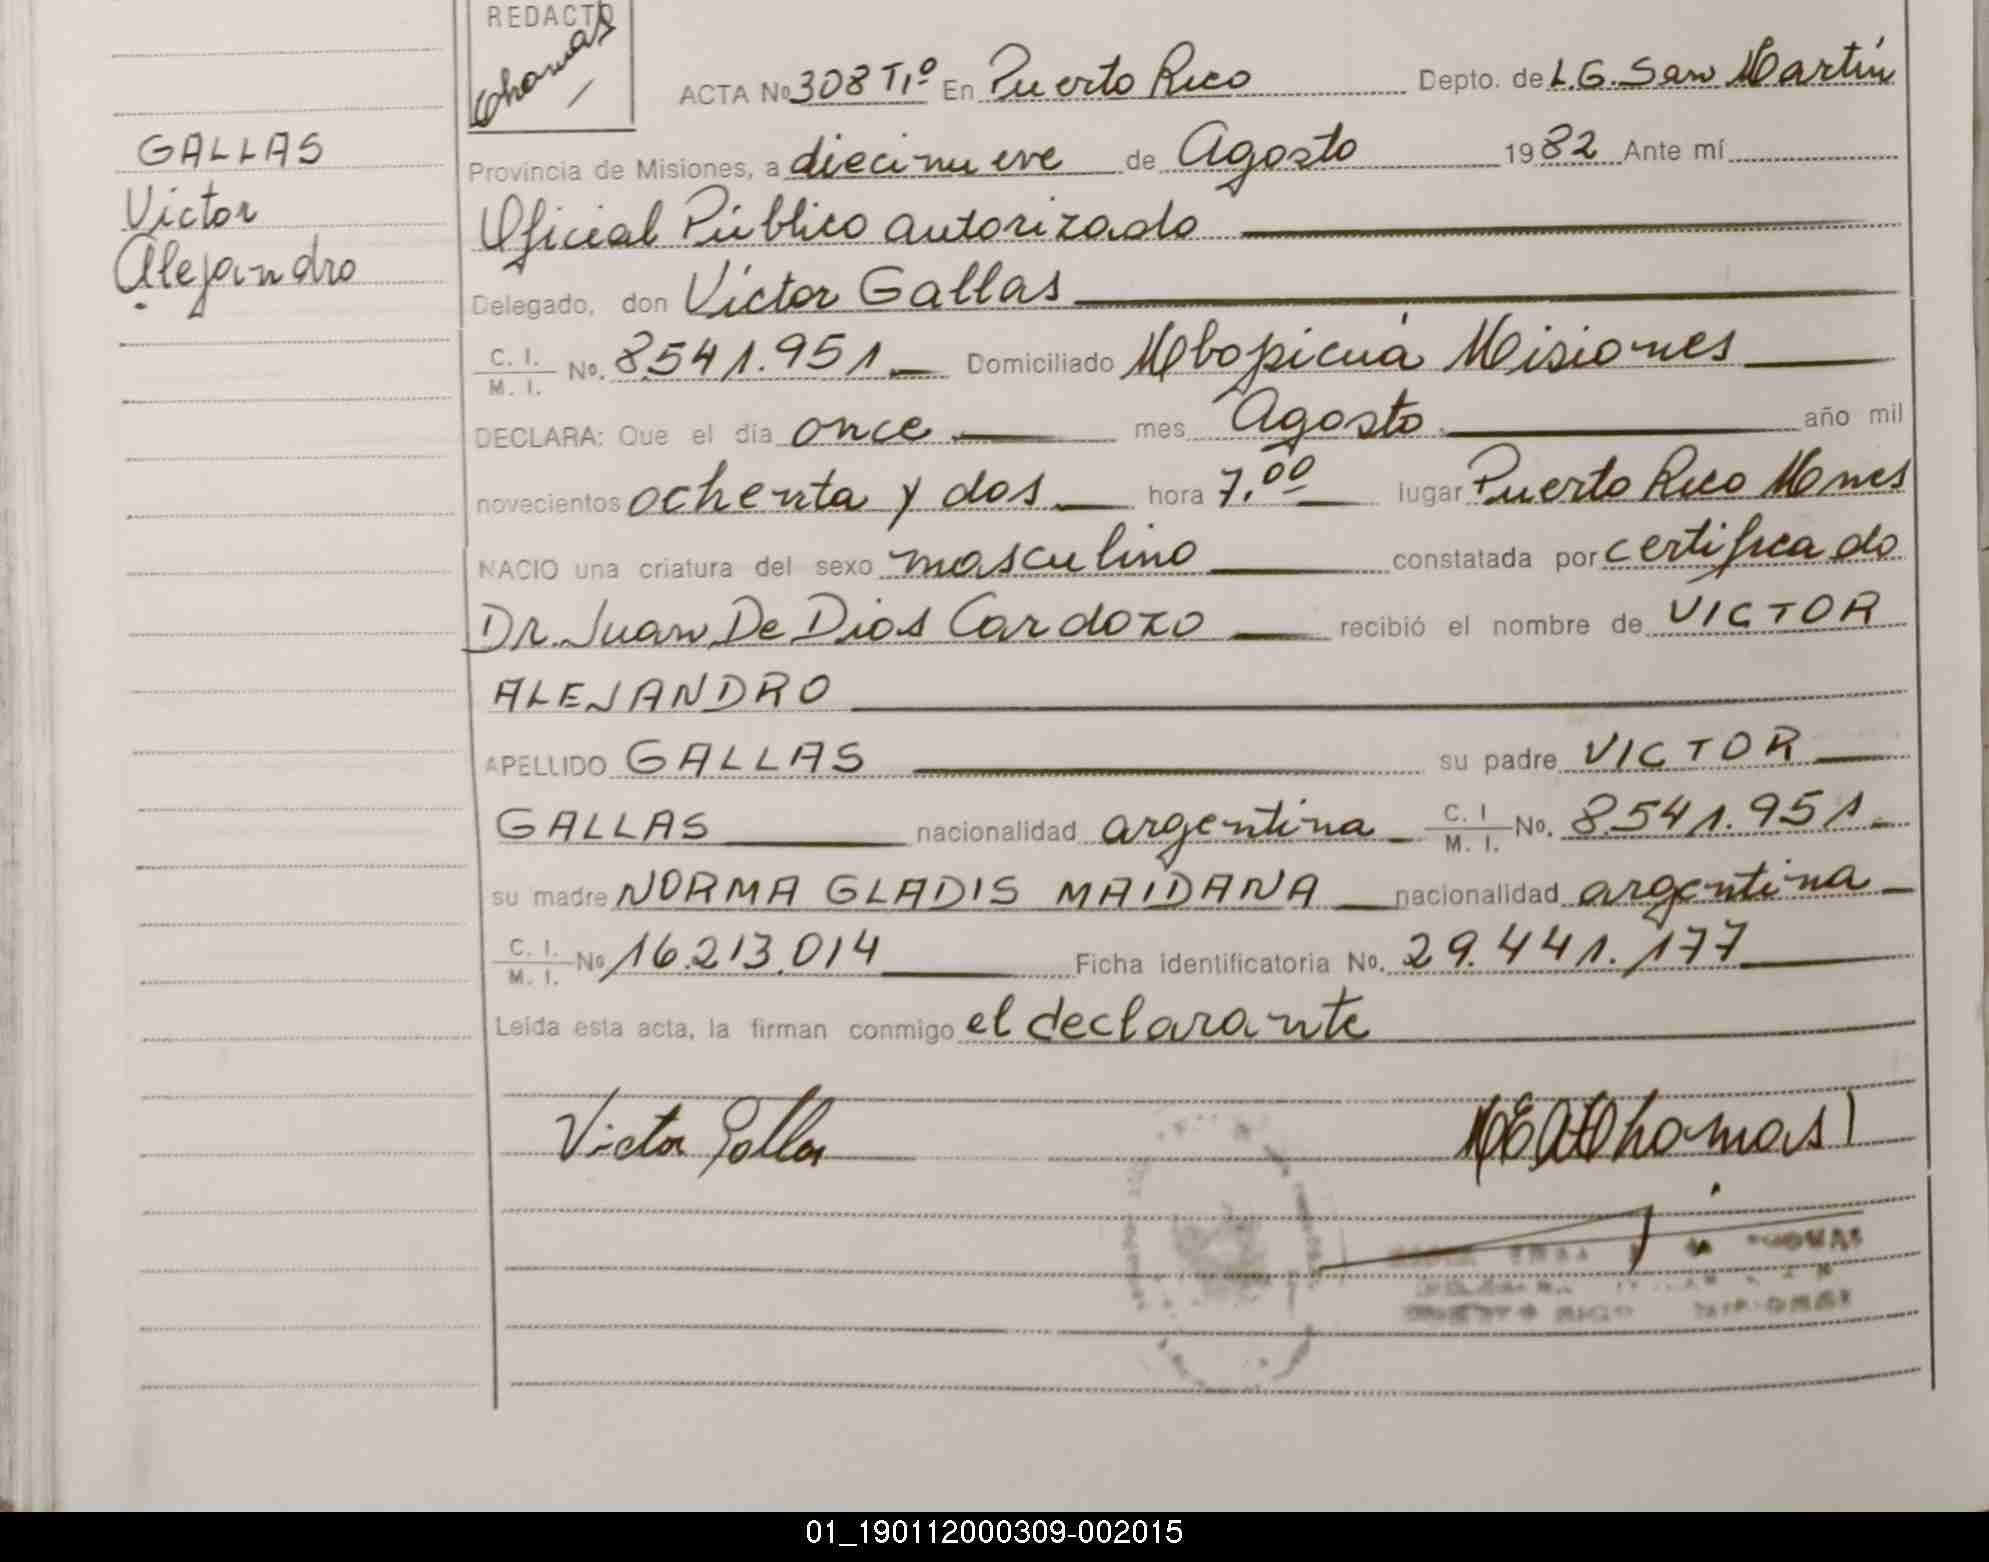 REDACTO
Thomas
ACTA No 308 T1º En Puerto Rico Depto. de L.G. San Martín
GALLAS
Victor
Alejandro
Provincia de Misiones, a diecinueve de Agosto 1982 Ante mí
Oficial Público autorizado
Delegado, don Victor Gallas
C. I. / M. I. No. 8.541.951 Domiciliado Mbopicuá Misiones
DECLARA: Que el día once mes Agosto año mil
novecientos ochenta y dos hora 7.00 lugar Puerto Rico Mnes
NACIO una criatura del sexo masculino constatada por certificado
Dr. Juan De Dios Cardozo recibió el nombre de VICTOR
ALEJANDRO
APELLIDO GALLAS su padre VICTOR
GALLAS nacionalidad argentina C. I / M. I. No. 8.541.951
su madre NORMA GLADIS MAIDANA nacionalidad argentina
C. I. / M. I. No 16.213.014 Ficha identificatoria No. 29.441.177
Leída esta acta, la firman conmigo el declarante
Victor Gallas
Thomas
THOMAS
PUERTO RICO MISIONES
01_190112000309-002015